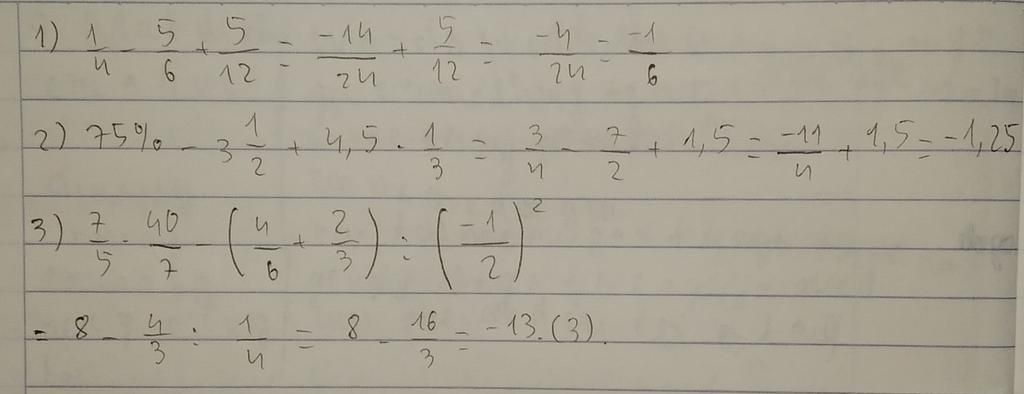 1) 1/4 - 5/6 + 5/12 = -14/24 + 5/12 = -4/24 = -1/6
2) 75% - 3 1/2 + 4,5 · 1/3 = 3/4 - 7/2 + 1,5 = -11/4 + 1,5 = -1,25
3) 7/5 · 40/7 - (4/6 + 2/3) : (-1/2)²
= 8 - 4/3 : 1/4 = 8 - 16/3 = -13.(3).